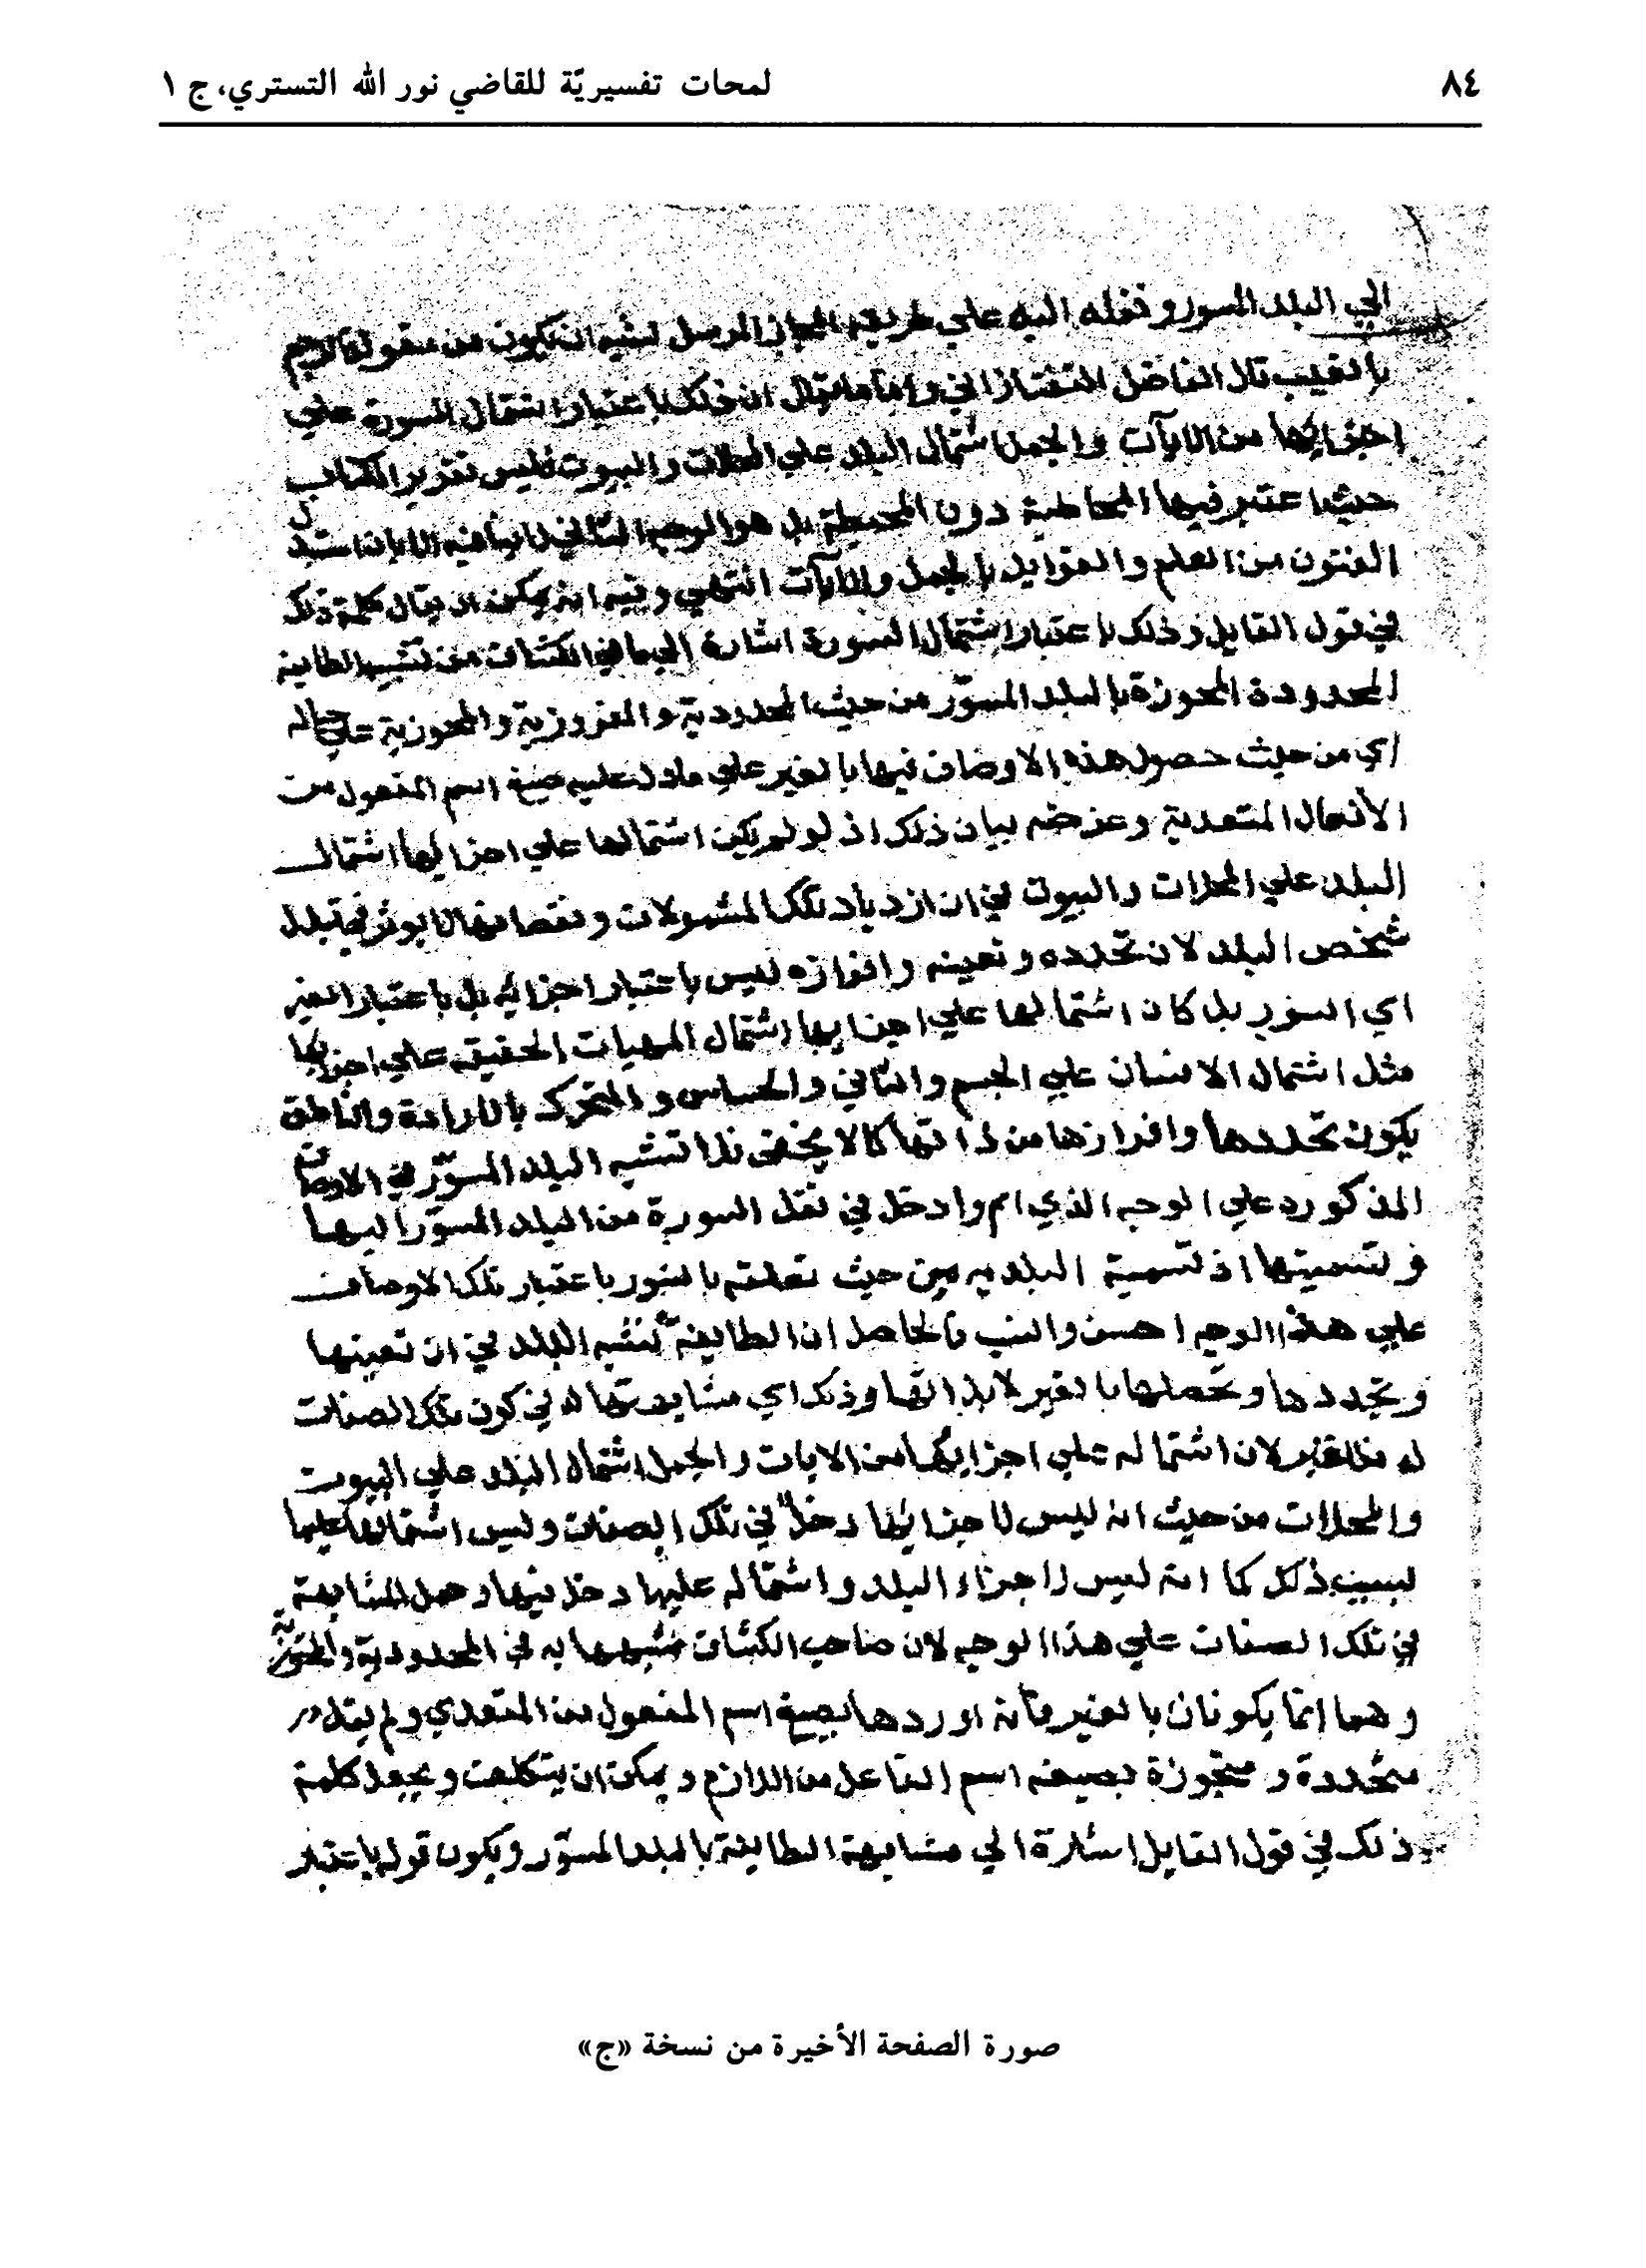 ٨٤
لمحات تفسيريّة للقاضي نور الله التستري، ج ١
الي البلد المسور و نقله اليه علي طريقة المجاز المرسل ان يكون من مقولة
بالغيب قال الفاضل التفتازاني و اما ما يقال ان ذلك باعتبار اشتمال السورة علي
اجزائها من الايات و الجمل اشتمال البلد علي المحلات و البيوت فليس تقرير الكتاب
حيث اعتبر فيها المحاطية دون المحيطية بل هو الوجه الثاني
الفنون من العلم و الفوايد بالجمل و الايات انتهي و فيه انه يمكن ان يقال كلمة ذلك
في قول القايل و ذلك باعتبار اشتمال السورة اشارة الي ما في الكشاف من تشبيه الطايفة
المحدودة المحوزة بالبلد المسوّر من حيث المحدودية و المفروزية و المحوزية علي حياله
اي من حيث حصول هذه الاوصاف فيها بالغير علي ما دل عليه صيغ اسم المفعول من
الأفعال المتعدية و غرضه بيان ذلك اذ لو لم يكن اشتمالها علي اجزايها اشتمال
البلد علي المحلات و البيوت في ان ازدياد تلك المشمولات و نقصانها لا يوثر في تبدل
شخص البلد لان تحدده و تعينه و افرازه ليس باعتبار اجزائه بل باعتبار الغير
اي السور بل كان اشتمالها علي اجزايها اشتمال المهيات الحقيقه علي اجزايها
مثل اشتمال الانسان علي الجسم و النامي و الحساس و المتحرك بالارادة و الناطق
يكون تحددها و افرازها من ذاتها كما لا يخفى فذا تشبيه البلد المسوّر في الاوصاف
المذكوره علي الوجه الذي ام و ادخل في نقل السورة من البلد المسوّر اليها
و تسميتها اذ تسمية البلد به من حيث تعلقه بالسور باعتبار تلك الاوصاف
علي هذا الوجه احسن و انسب فالحاصل ان الطايفة تشبه البلد في ان تعينها
و تحددها و تحصلها بالغير لا بذاتها و ذلك اي مشابهتها له في كون تلك الصفات
له بالغير لان اشتماله علي اجزايها من الايات و الجمل اشتمال البلد علي البيوت
و المحلات من حيث انه ليس لاجزايها دخلٌ في تلك الصفات و ليس اشتمالها عليها
لسبب ذلك كما انه ليس لاجزاء البلد و اشتماله عليها دخل فيها و حمل المشابهة
في تلك الصفات علي هذا الوجه لان صاحب الكشاف شبهها به في المحدودية و المحوزية
و هما انّما يكونان بالغير فأنه اوردها بصيغ اسم المفعول من المتعدي و لم يقل
متحددة و متحوزة بصيغه اسم الفاعل من اللازم و يمكن ان يتكلف و يجعل كلمة
ذلك في قول القايل اشارة الي مشابهة الطايفة بالبلد المسوّر و يكون قوله باعتبار
صورة الصفحة الأخيرة من نسخة «ج»